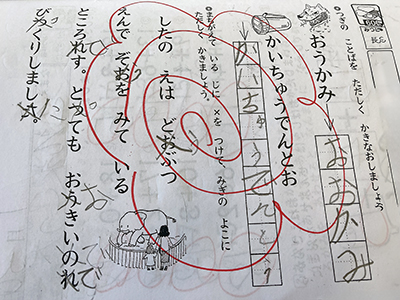 ◎つぎの ことばを ただしく かきなおしましょう
おうかみ
おおかみ
かいちゅうでんとお
かいちゅうでんとう
◎まちがえて いる じに ×を つけて みぎの よこに
ただしく かきましょう。
したの えは どおぶつ
う
えんで ぞおを みて いる
ところれす。 おうきいのれ
で
お
で
くりしました。